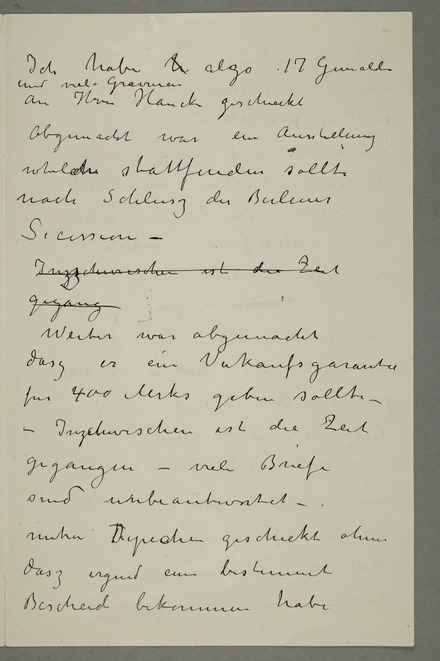 Ich habe also 17 Gemälde
und viele Gravuren
an Herrn Hauck geschickt
Abgemacht war ein Ausstellung
welche stattfinden sollte
nach Schlusz der Berliner
Secession –
Inzwischen ist die Zeit
gegang
Weiter war abgemacht
dasz er ein Verkaufsgarantie
für 400 Merks geben sollte –
– Inzwischen ist die Zeit
gegangen – viele Briefe
sind unbeantwortet –
Depechen geschickt ohne
dasz irgend ein bestimmt
Bescheid bekommen habe